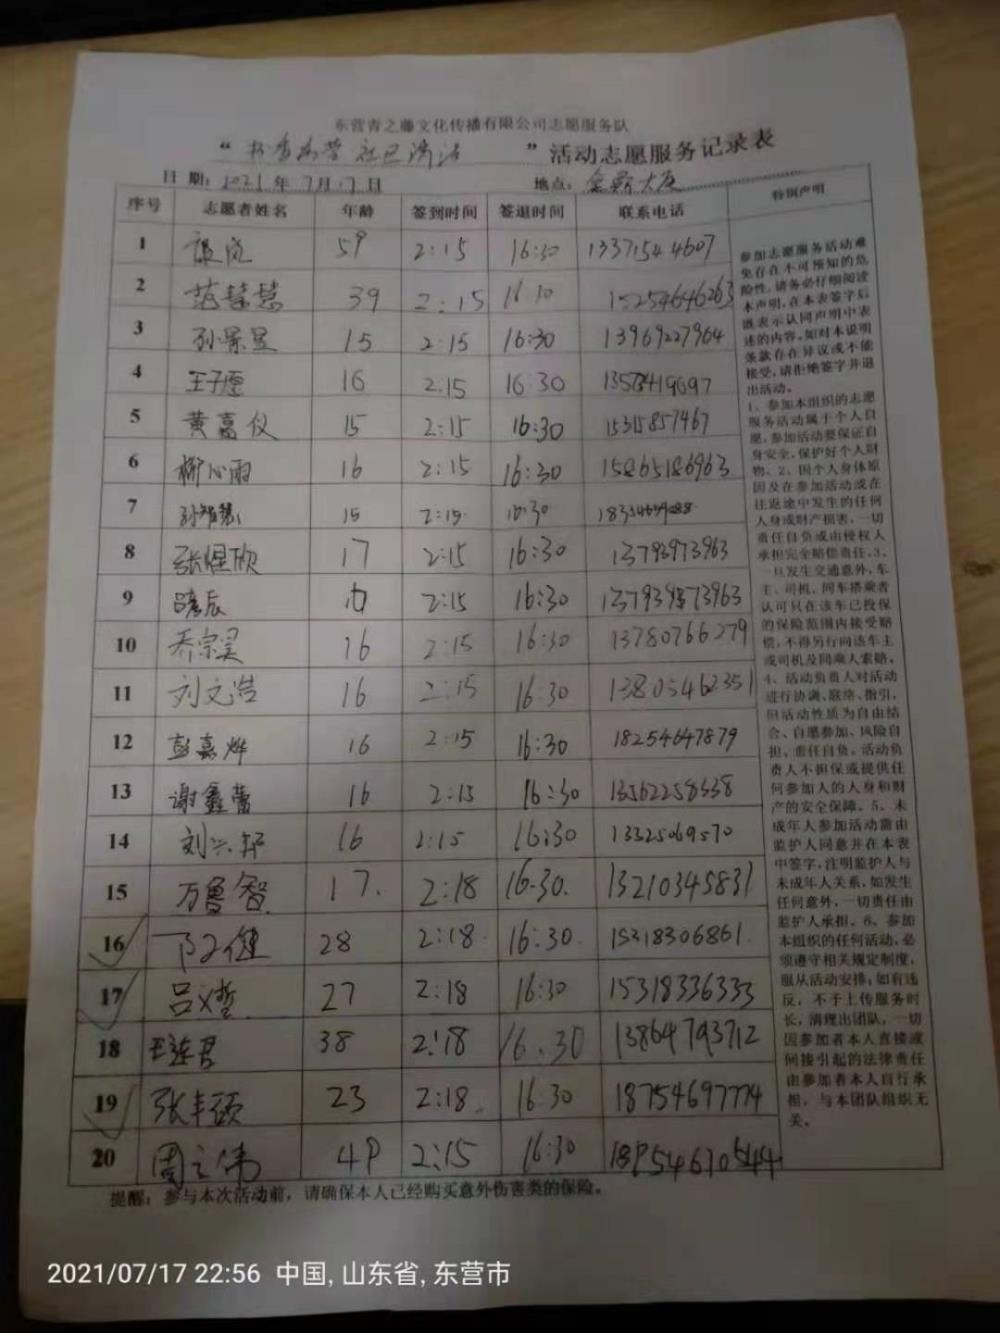 东营青之藤文化传播有限公司志愿服务队
“书香 社区 ”活动志愿服务记录表
日期：2021年7月17日 地点： 大厦
序号 志愿者姓名 年龄 签到时间 签退时间 联系电话 特别声明
1 59 2:15 16:30 13371544607
2 范慧慧 39 2:15 16:30 15254646263
3 孙景昱 15 2:15 16:30 13969227964
4 王子愿 16 2:15 16:30
5 黄嘉仪 15 2:15 16:30 15315857467
6 柳心雨 16 2:15 16:30 15865186963
7 孙智慧 15 2:15 16:30
8 张煜欣 17 2:15 16:30 13793973963
9 2:15 16:30
10 乔宗昊 16 2:15 16:30 13780766279
11 刘文浩 16 2:15 16:30 13805462351
12 彭嘉烨 16 2:15 16:30 18254647879
13 谢鑫蕾 16 2:15 16:30 13562258338
14 刘兴邦 16 2:15 16:30
15 万鲁智 17. 2:18 16:30. 13210345831
16 健 28 2:18 16:30. 15318306861.
17 吕文哲 27 2:18 16:30 15318336333
18 王莲君 38 2:18 16.30 13864793712
19 张丰硕 23 2:18. 16:30 18754697774
20 周立伟 49 2:15 16:30
参加志愿服务活动难
免存在不可预知的危
险性，请务必仔细阅读
本声明，在本表签字后
既表示认同声明中表
述的内容。如对本说明
条款存在异议或不能
接受，请拒绝签字并退
出活动。
1、参加本组织的志愿
服务活动属于个人自
愿，参加活动要保证自
身安全，保护好个人财
物。2、因个人身体原
因及在参加活动或在
往返途中发生的任何
人身或财产损害，一切
责任自负或由侵权人
承担完全赔偿责任。3、
一旦发生交通意外，车
主、司机、同车搭乘者
认可只在该车已投保
的保险范围内接受赔
偿，不得另行向该车主
或司机及同乘人索赔。
4、活动负责人对活动
进行协调、联络、指引，
但活动性质为自由结
合、自愿参加、风险自
担、责任自负。活动负
责人不担保或提供任
何参加人的人身和财
产的安全保障。5、未
成年人参加活动需由
监护人同意并在本表
中签字，注明监护人与
未成年人关系，如发生
任何意外，一切责任由
监护人承担。6、参加
本组织的任何活动，必
须遵守相关规定制度，
服从活动安排；如有违
反，不予上传服务时
长，清理出团队，一切
因参加者本人直接或
间接引起的法律责任
由参加者本人自行承
担，与本团队组织无
关。
提醒：参与本次活动前，请确保本人已经购买意外伤害类的保险。
2021/07/17 22:56 中国, 山东省, 东营市